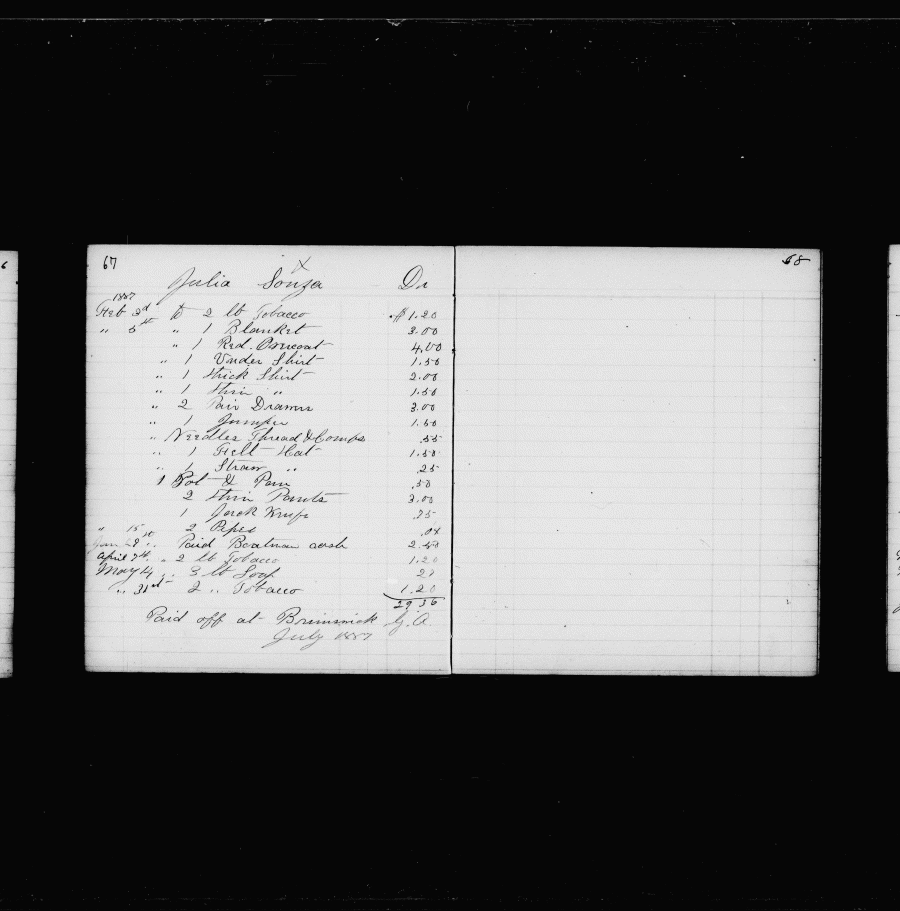 6
67
x
Julia Souza Dr
1887
Feb 3rd to 2 lb Tobacco $1.20
" 5th " 1 Blanket 3.00
" 1 Red. Overcoat 4.00
" 1 Under Shirt 1.50
" 1 Thick Shirt 2.00
" 1 Thin " 1.50
" 2 Pair Drawers 3.00
" 1 Jumper 1.50
" Needles Thread & Combs .55
" 1 Felt Hat 1.50
" 1 Straw " .25
1 Pot & Pan .50
2 Thin Pants 3.00
1 Jack Knife .75
" 15 2 Pipes
Paid Boatman cash 2.50
April 7th " 2 lb Tobacco 1.20
May 4 " 3 lb Soap
" 31st 2 " Tobacco 1.20
29 36
Paid off at Brunswick G.A.
July 1887
68